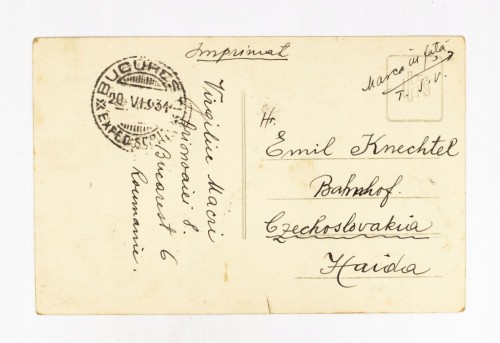 Imprimat
Marca în față
T. S. V.
BUCUREȘTI
20. VI. 934
EXPED. SCR
Virgiliu Macri
8.
Bucarest 6
Roumanie.
Hr.
Emil Knechtel
Bahnhof.
Czechoslovakia
Haida